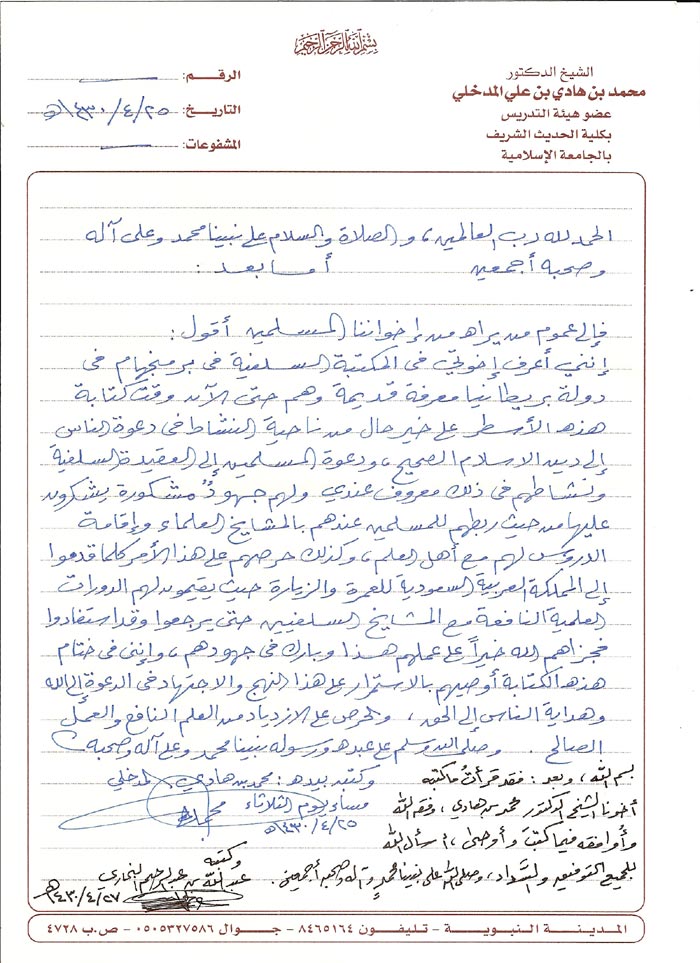 بسم الله الرحمن الرحيم
الشيخ الدكتور
محمد بن هادي بن علي المدخلي
عضو هيئة التدريس
بكلية الحديث الشريف
بالجامعة الإسلامية
الرقم:
التاريخ: ١٤٣٠/٤/٢٥هـ
المشفوعات:
الحمد لله رب العالمين، والصلاة والسلام على نبينا محمد وعلى آله
وصحبه أجمعين أما بعد:
فإلى عموم من يراه من إخواننا المسلمين أقول:
إنني أعرف إخوتي في المكتبة السلفية في برمنجهام في
دولة بريطانيا معرفة قديمة وهم حتى الآن وقت كتابة
هذه الأسطر على خير حال من ناحية النشاط في دعوة الناس
إلى دين الاسلام الصحيح، ودعوة المسلمين إلى العقيدة السلفية
ونشاطهم في ذلك معروف عندي ولهم جهودٌ مشكورة يشكرون
عليها من حيث ربطهم للمسلمين عندهم بالمشايخ العلماء وإقامة
الدروس لهم مع أهل العلم، وكذلك حرصهم على هذا الأمر كلما قدموا
إلى المملكة العربية السعودية للعمرة والزيارة حيث يقيمون لهم الدورات
العلمية النافعة مع المشايخ السلفيين حتى يرجعوا وقد استفادوا
فجزاهم الله خيراً على عملهم هذا وبارك في جهودهم، وإنني في ختام
هذه الكتابة أوصيهم بالاستمرار على هذا النهج والاجتهاد في الدعوة إلى الله
وهداية الناس إلى الحق، والحرص على الازدياد من العلم النافع والعمل
الصالح. وصلى الله وسلم على عبده ورسوله نبينا محمد وعلى آله وصحبه
وكتبه بيده: محمد بن هادي المدخلي
مساء يوم الثلاثاء
١٤٣٠/٤/٢٥هـ
بسم الله، وبعد: فقد قرأتُ ما كتبه
أخونا الشيخ الدكتور محمد بن هادي، وفقه الله
وأوافقه فيما كتبَ وأوصى، أسأل الله
للجميع التوفيق والسَّداد، وصلى الله على نبينا محمدٍ وآله وصحبه أجمعين.
وكتبه
عبد الله بن عبد الرحيم البخاري
١٤٣٠/٤/٢٧هـ
المدينة النبوية - تليفون ٨٤٦٥١٦٤ - جوال ٠٥٠٥٣٢٧٥٨٦ - ص.ب ٤٧٢٨